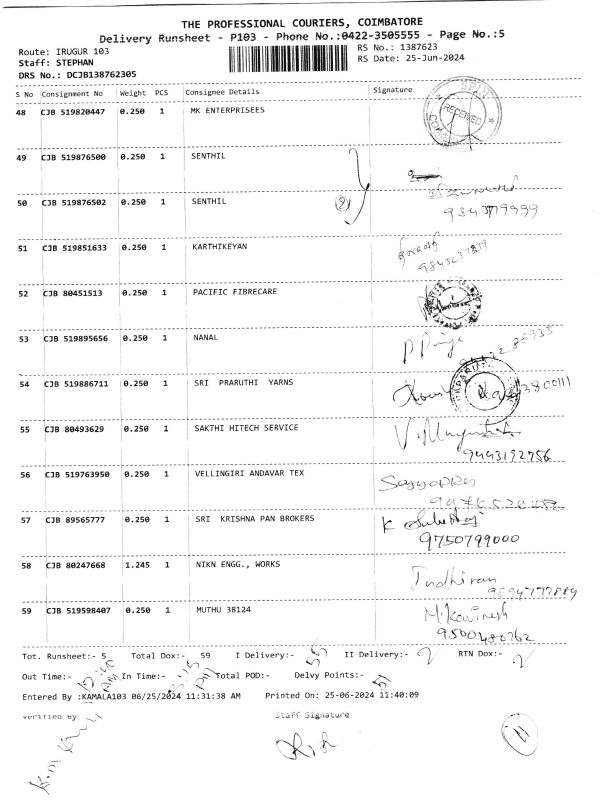 THE PROFESSIONAL COURIERS, COIMBATORE
Delivery Runsheet - P103 - Phone No.:0422-3505555 - Page No.:5
Route: IRUGUR 103 RS No.: 1387623
Staff: STEPHAN RS Date: 25-Jun-2024
DRS No.: DCJB138762305
S No Consignment No Weight PCS Consignee Details Signature
48 CJB 519820447 0.250 1 MK ENTERPRISEES RECEIVED
49 CJB 519876500 0.250 1 SENTHIL
50 CJB 519876502 0.250 1 SENTHIL
51 CJB 519851633 0.250 1 KARTHIKEYAN
52 CJB 80451513 0.250 1 PACIFIC FIBRECARE
53 CJB 519895656 0.250 1 NANAL
54 CJB 519886711 0.250 1 SRI PRARUTHI YARNS
55 CJB 80493629 0.250 1 SAKTHI HITECH SERVICE
9443192756
56 CJB 519763950 0.250 1 VELLINGIRI ANDAVAR TEX
57 CJB 89565777 0.250 1 SRI KRISHNA PAN BROKERS
9750799000
58 CJB 80247668 1.245 1 NIKN ENGG., WORKS
Indhiran
59 CJB 519598407 0.250 1 MUTHU 38124
M.Kavinesh
9500480762
Tot. Runsheet:- 5 Total Dox:- 59 I Delivery:- II Delivery:- RTN Dox:-
Out Time:- In Time:- Total POD:- Delvy Points:-
Entered By :KAMALA103 06/25/2024 11:31:38 AM Printed On: 25-06-2024 11:40:09
Verified By Staff Signature